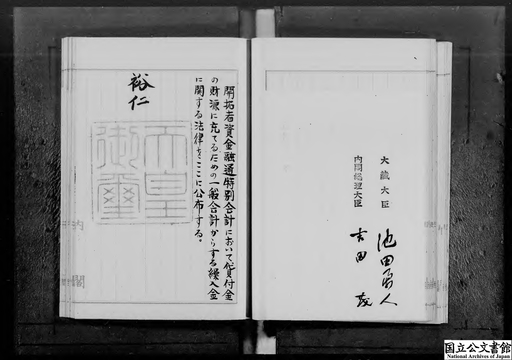 開拓者資金融通特別会計において貸付金
の財源に充てるための一般会計からする繰入金
に関する法律をここに公布する。
裕仁
天皇
御璽
大蔵大臣 池田勇人
内閣総理大臣 吉田茂
国立公文書館
National Archives of Japan